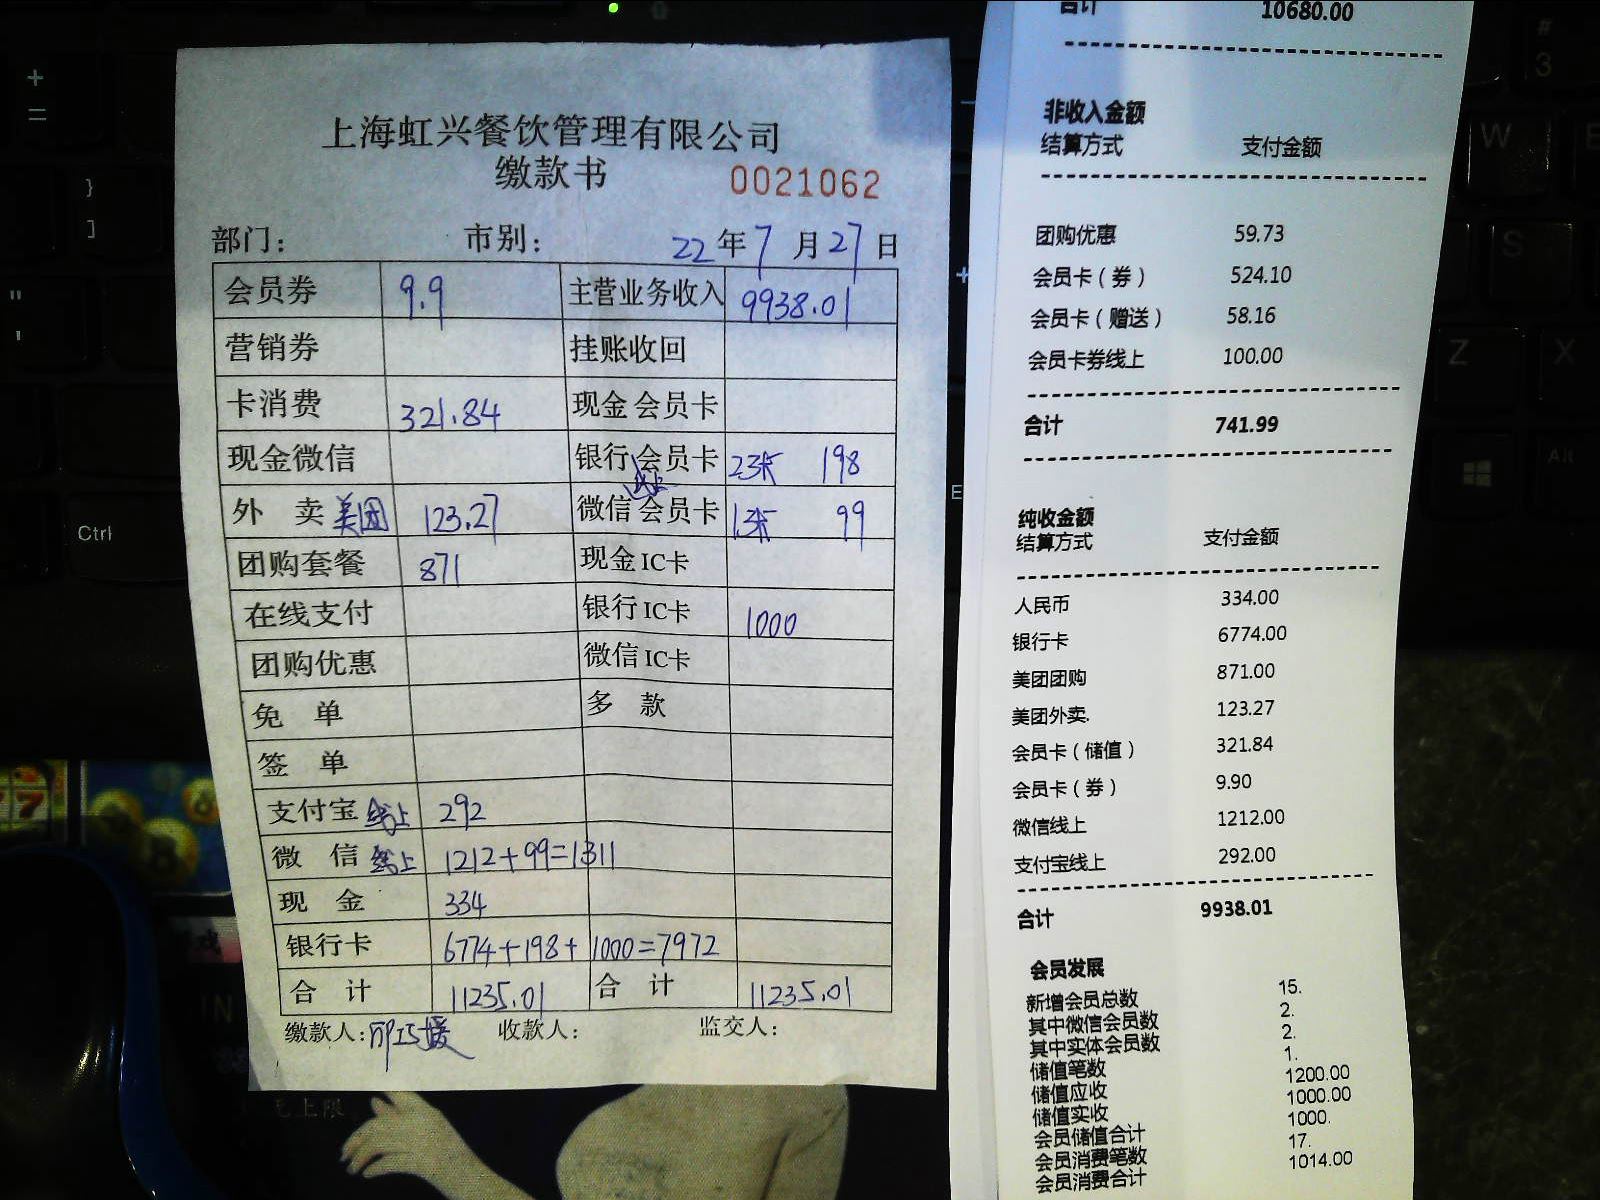 上海虹兴餐饮管理有限公司
缴款书
0021062
部门: 市别: 22年7月27日
会员券 9.9 主营业务收入 9938.01
营销券 挂账收回
卡消费 321.84 现金会员卡
现金微信 银行会员卡 2张 198
外 卖 美团 123.27 微信线上会员卡 1张 99
团购套餐 871 现金IC卡
在线支付 银行IC卡 1000
团购优惠 微信IC卡
免 单 多 款
签 单
支付宝线上 292
微 信线上 1212+99=1311
现 金 334
银行卡 6774+198+1000=7972
合 计 11235.01 合 计 11235.01
缴款人: 收款人: 监交人:
合计 10680.00
非收入金额
结算方式 支付金额
团购优惠 59.73
会员卡（券） 524.10
会员卡（赠送） 58.16
会员卡券线上 100.00
合计 741.99
纯收金额
结算方式 支付金额
人民币 334.00
银行卡 6774.00
美团团购 871.00
美团外卖. 123.27
会员卡（储值） 321.84
会员卡（券） 9.90
微信线上 1212.00
支付宝线上 292.00
合计 9938.01
会员发展
新增会员总数 15.
其中微信会员数 2.
其中实体会员数 2.
储值笔数 1.
储值应收 1200.00
储值实收 1000.00
会员储值合计 1000.
会员消费笔数 17.
会员消费合计 1014.00
Ctrl
Alt
W
S
Z
X
#
3